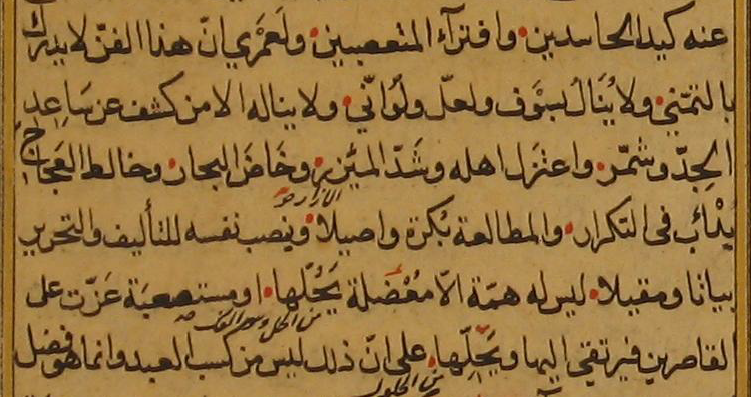 عنه كيد الحاسدين. وافترآء المتعصبين. ولَعَمْري انّ هذا الفنّ لا يدرك
بالتمنّي. ولا يُنَالُ بسَوْف ولعلّ ولَوْ انّي. ولا يناله الا من كشف عن سَاعِدِ
الجِدّ وشمّر. واعتزل اهله وشَدّ المئزر. وخَاضَ البحار. وخالط العَجَاج
الازار
يَدْأبُ فى التكرار. والمطالعة بُكرَة واصيلا. وينصب نفسه للتأليف والتحرير
بياتا ومقيلا. ليس له همّة الاّ مُعْضلة يَحُلّها. او مستصعبَة عَزّت على
من الحل وهو الفك
القاصرين فيرتقي اليها ويَحِلّها. على انّ ذلك ليس من كسب العبد وانما هو فضل
من الحلول